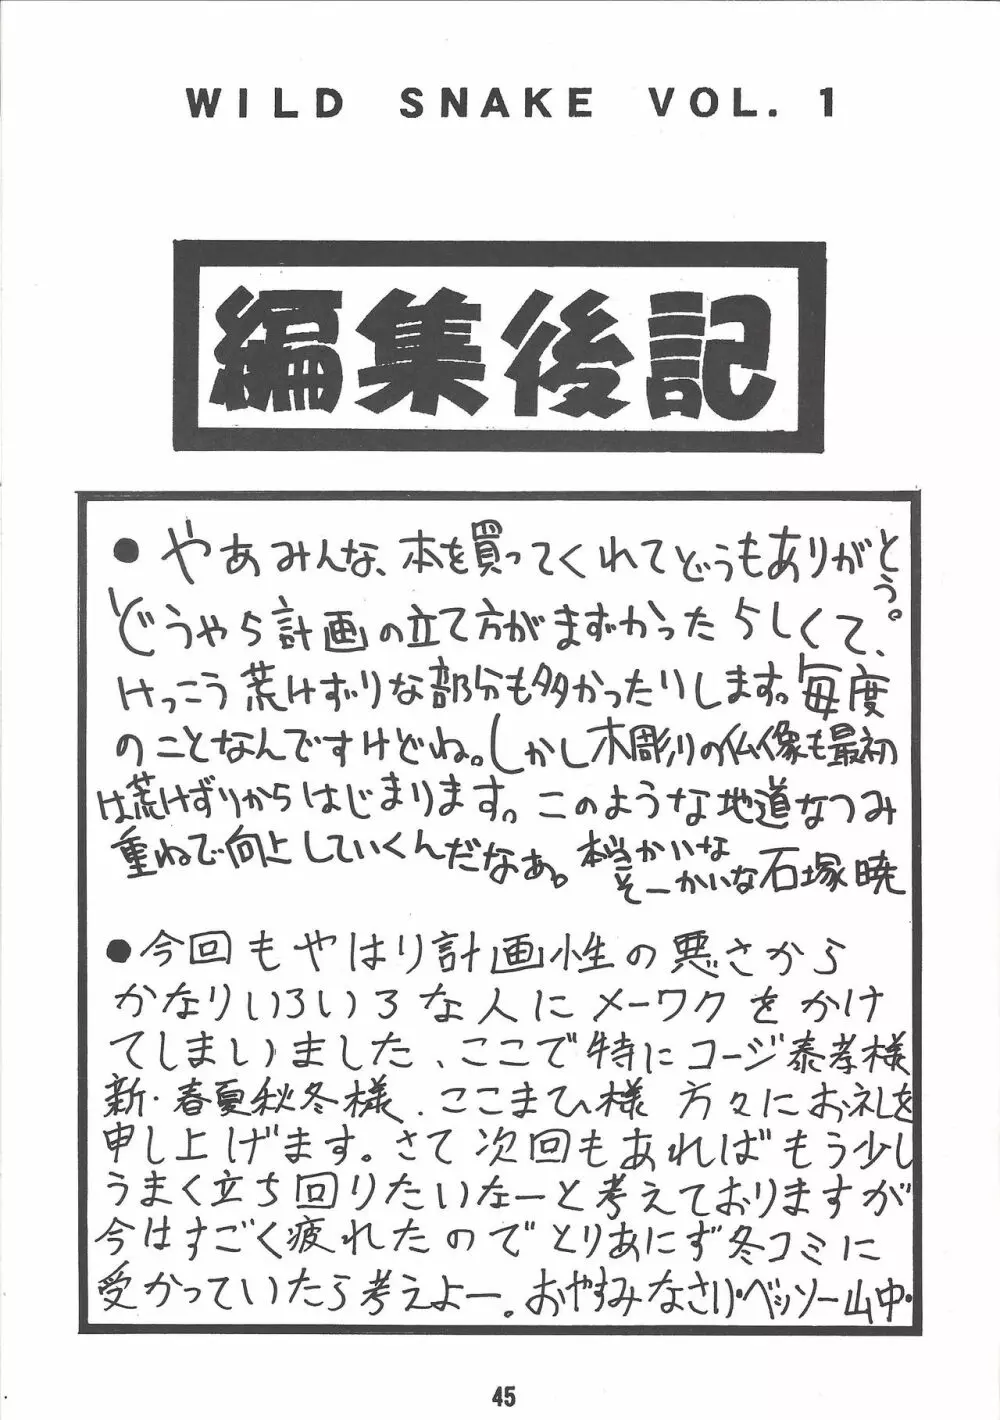 WILD SNAKE VOL. 1
編集後記
●やあみんな、本を買ってくれてどうもありがとう。
どうやら計画の立て方がまずかったらしくて、
けっこう荒けずりな部分も多かったりします。毎度
のことなんですけどね。しかし木彫りの仏像も最初
は荒けずりからはじまります。このような地道なつみ
重ねで向上していくんだなぁ。本当かいな
そーかいな 石塚暁
●今回もやはり計画性の悪さから
かなりいろいろな人にメーワクをかけ
てしまいました、ここで特にコージ泰孝様
新・春夏秋冬様、ここまひ様 方々にお礼を
申し上げます。さて次回もあればもう少し
うまく立ち回りたいなーと考えておりますが
今はすごく疲れたのでとりあにず冬コミに
受かっていたら考えよー。おやすみなさい・ベッソー山中・
45